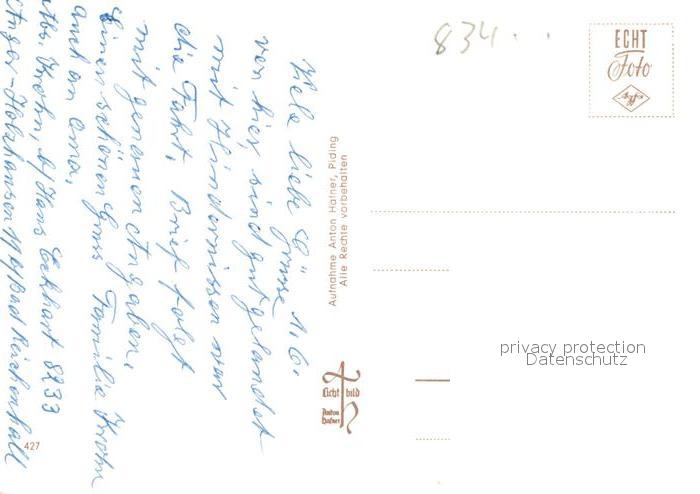 Viele liebe Grüsse
von hier, sind gut gelandet
mit Hindernissen war
die Fahrt. Brief folgt
mit genauen Angaben.
Einen schönen Gruss Familie Krohn
auch an Oma.
Krohn, b/ Hans Eckhart 8233
Anger-Holzhausen b/Bad Reichenhall
427
834
Aufnahme Anton Hafner, Piding
Alle Rechte vorbehalten
Lichtbild
Anton
Hafner
ECHT
Foto
Agfa
privacy protection
Datenschutz